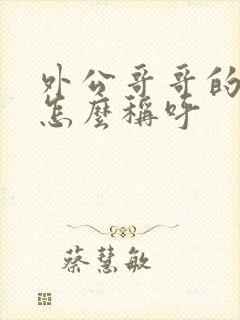 外公哥哥的
怎麼稱呼
蔡慧敏